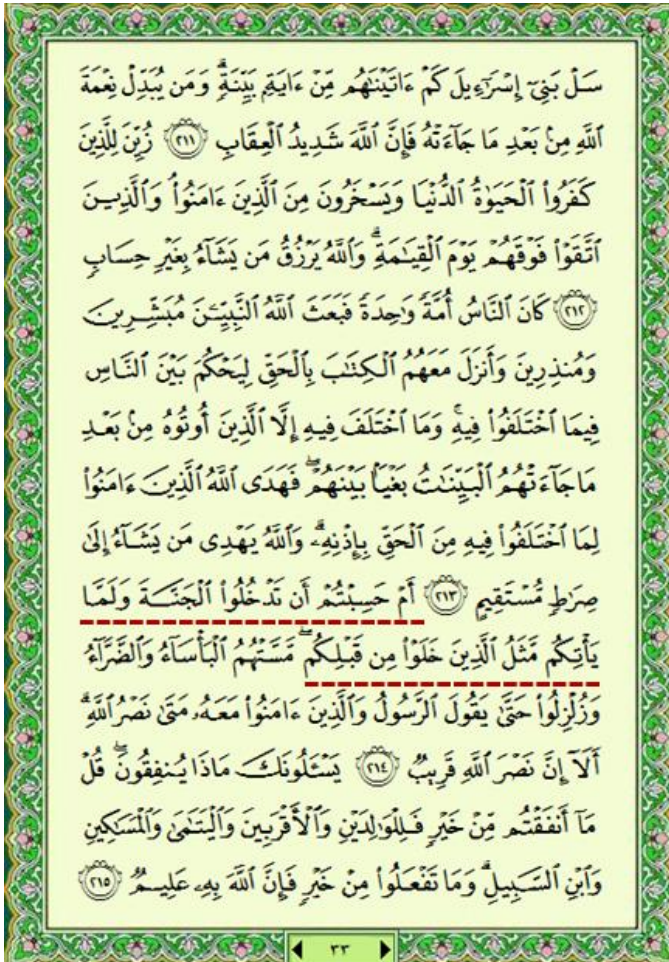 سَلْ بَنِىٓ إِسْرَٰٓءِيلَ كَمْ ءَاتَيْنَٰهُم مِّنْ ءَايَةٍۭ بَيِّنَةٍ ۗ وَمَن يُبَدِّلْ نِعْمَةَ
ٱللَّهِ مِنۢ بَعْدِ مَا جَآءَتْهُ فَإِنَّ ٱللَّهَ شَدِيدُ ٱلْعِقَابِ ٢١١ زُيِّنَ لِلَّذِينَ
كَفَرُوا۟ ٱلْحَيَوٰةُ ٱلدُّنْيَا وَيَسْخَرُونَ مِنَ ٱلَّذِينَ ءَامَنُوا۟ ۘ وَٱلَّذِينَ
ٱتَّقَوْا۟ فَوْقَهُمْ يَوْمَ ٱلْقِيَٰمَةِ ۗ وَٱللَّهُ يَرْزُقُ مَن يَشَآءُ بِغَيْرِ حِسَابٍ
٢١٢ كَانَ ٱلنَّاسُ أُمَّةً وَٰحِدَةً فَبَعَثَ ٱللَّهُ ٱلنَّبِيِّۦنَ مُبَشِّرِينَ
وَمُنذِرِينَ وَأَنزَلَ مَعَهُمُ ٱلْكِتَٰبَ بِٱلْحَقِّ لِيَحْكُمَ بَيْنَ ٱلنَّاسِ
فِيمَا ٱخْتَلَفُوا۟ فِيهِ ۚ وَمَا ٱخْتَلَفَ فِيهِ إِلَّا ٱلَّذِينَ أُوتُوهُ مِنۢ بَعْدِ
مَا جَآءَتْهُمُ ٱلْبَيِّنَٰتُ بَغْيًۢا بَيْنَهُمْ ۖ فَهَدَى ٱللَّهُ ٱلَّذِينَ ءَامَنُوا۟
لِمَا ٱخْتَلَفُوا۟ فِيهِ مِنَ ٱلْحَقِّ بِإِذْنِهِۦ ۗ وَٱللَّهُ يَهْدِى مَن يَشَآءُ إِلَىٰ
صِرَٰطٍ مُّسْتَقِيمٍ ٢١٣ أَمْ حَسِبْتُمْ أَن تَدْخُلُوا۟ ٱلْجَنَّةَ وَلَمَّا
يَأْتِكُم مَّثَلُ ٱلَّذِينَ خَلَوْا۟ مِن قَبْلِكُم ۖ مَّسَّتْهُمُ ٱلْبَأْسَآءُ وَٱلضَّرَّآءُ
وَزُلْزِلُوا۟ حَتَّىٰ يَقُولَ ٱلرَّسُولُ وَٱلَّذِينَ ءَامَنُوا۟ مَعَهُۥ مَتَىٰ نَصْرُ ٱللَّهِ ۗ
أَلَآ إِنَّ نَصْرَ ٱللَّهِ قَرِيبٌ ٢١٤ يَسْـَٔلُونَكَ مَاذَا يُنفِقُونَ ۖ قُلْ
مَآ أَنفَقْتُم مِّنْ خَيْرٍ فَلِلْوَٰلِدَيْنِ وَٱلْأَقْرَبِينَ وَٱلْيَتَٰمَىٰ وَٱلْمَسَٰكِينِ
وَٱبْنِ ٱلسَّبِيلِ ۗ وَمَا تَفْعَلُوا۟ مِنْ خَيْرٍ فَإِنَّ ٱللَّهَ بِهِۦ عَلِيمٌ ٢١٥
٣٣